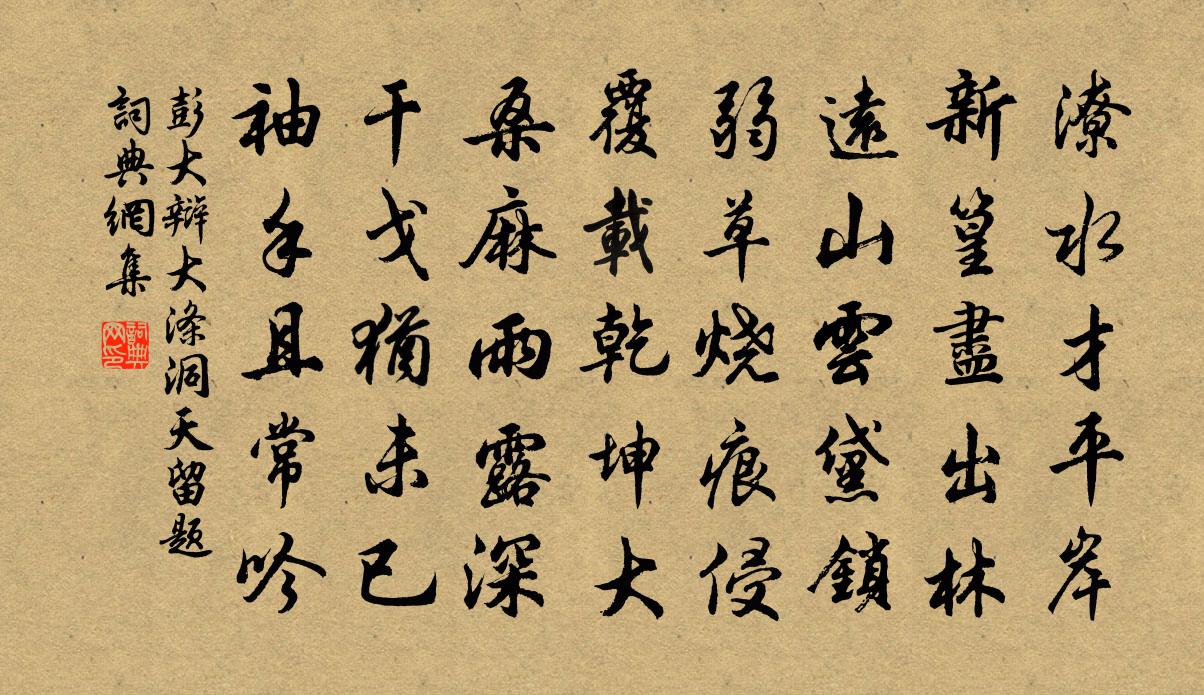 潦水才平岸
新篁盡出林
遠山雲黛鎖
弱草燒痕侵
覆載乾坤大
桑麻雨露深
干戈猶未已
袖手且常吟
彭大辯大滌洞天留题
詞典網集
詞典网印